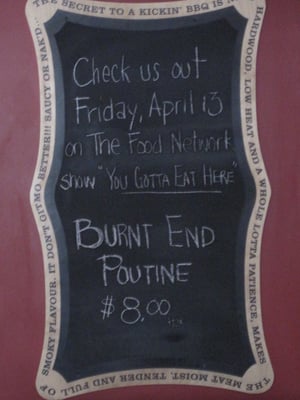 THE SECRET TO A KICKIN' BBQ IS
HARDWOOD, LOW HEAT AND A WHOLE LOTTA PATIENCE, MAKES
THE MEAT MOIST, TENDER AND FULL OF
SMOKY FLAVOUR. IT DON'T GITMO BETTER!!! SAUCY OR NAK'D.
Check us out
Friday, April 13
on The Food Network
show "YOU GOTTA EAT HERE"
BURNT END
POUTINE
$8.00